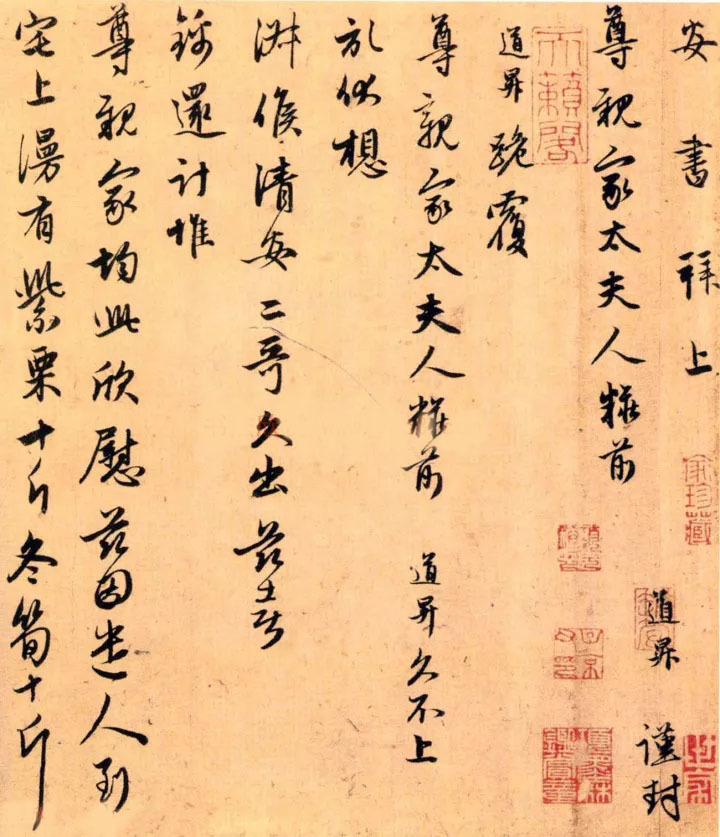 安書拜上
道昇謹封
尊親家太夫人粧前
天籟閣
道昇跪覆
尊親家太夫人粧前 道昇久不上
狀伏想
淑候清安二哥久出茲喜
錦還計惟
尊親家均此欣慰茲因遣人到
宅上漫有紫栗十斤冬筍十斤